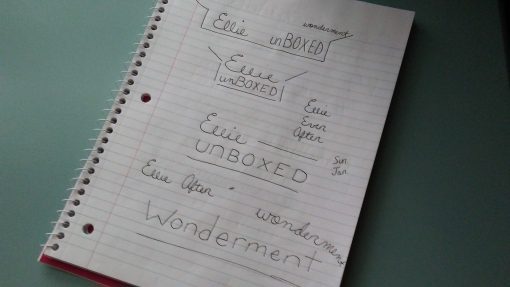 wonderment
Ellie unBOXED
Ellie
unBOXED
Ellie
Even
After
Ellie
UNBOXED
Sun
Jan
Ellie After
wonderment
Wonderment